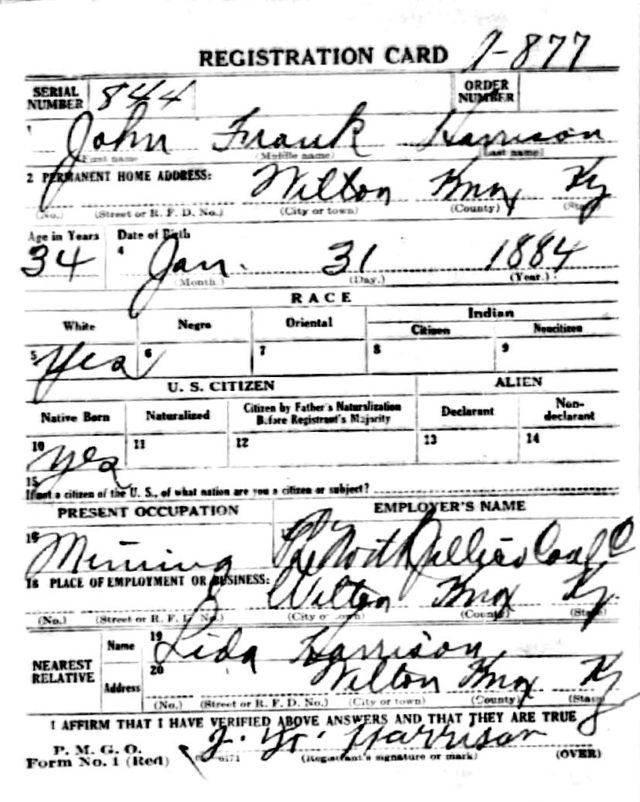 REGISTRATION CARD 1-877
SERIAL NUMBER 844 ORDER NUMBER
1 John Frank Harrison
(First name) (Middle name) (Last name)
2 PERMANENT HOME ADDRESS: Wilton Knox Ky
(No.) (Street or R. F. D. No.) (City or town) (County) (State)
Age in Years Date of Birth
34 4 Jan. 31 1884
(Month.) (Day.) (Year.)
RACE
White Negro Oriental Indian
Citizen Noncitizen
5 Yes 6 7 8 9
U. S. CITIZEN ALIEN
Native Born Naturalized Citizen by Father's Naturalization Before Registrant's Majority Declarant Non-declarant
10 Yes 11 12 13 14
15
If not a citizen of the U. S., of what nation are you a citizen or subject?
PRESENT OCCUPATION EMPLOYER'S NAME
16 Mining Coal C
18 PLACE OF EMPLOYMENT OR BUSINESS: Wilton Knox Ky.
(No.) (Street or R. F. D. No.) (City or town) (County) (State)
NEAREST RELATIVE Name 19 Lida Harrison
Address 20 Wilton Knox Ky
(No.) (Street or R. F. D. No.) (City or town) (County) (State)
I AFFIRM THAT I HAVE VERIFIED ABOVE ANSWERS AND THAT THEY ARE TRUE
P. M. G. O. Harrison
Form No. 1 (Red) (Registrant's signature or mark) (OVER)